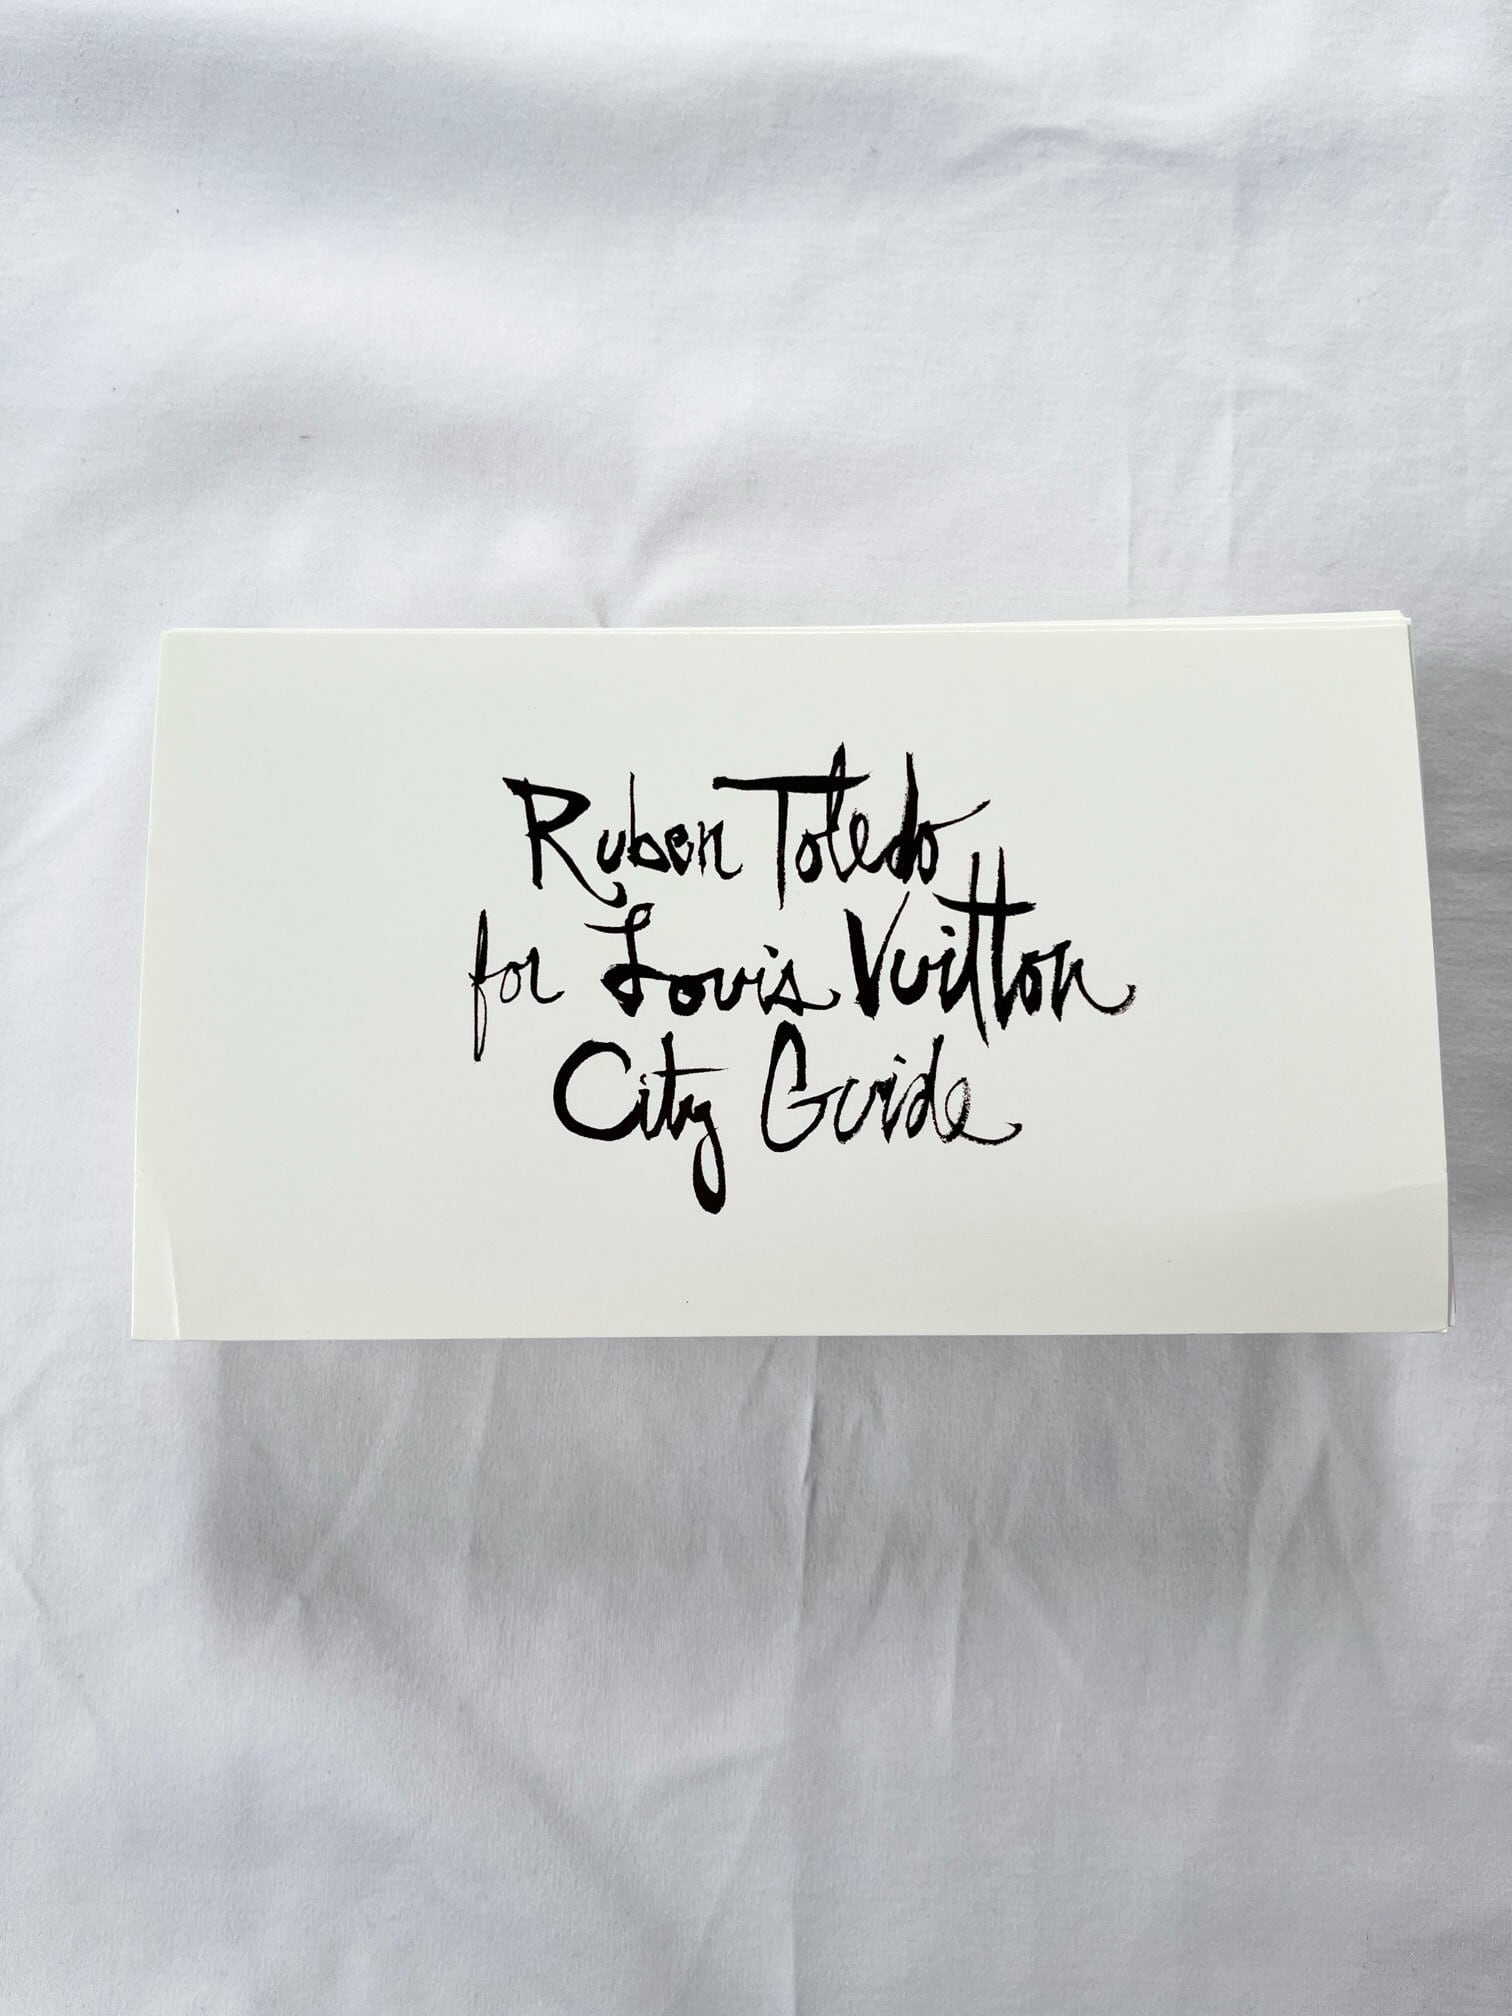 Ruben Toledo
for Louis Vuitton
City Guide